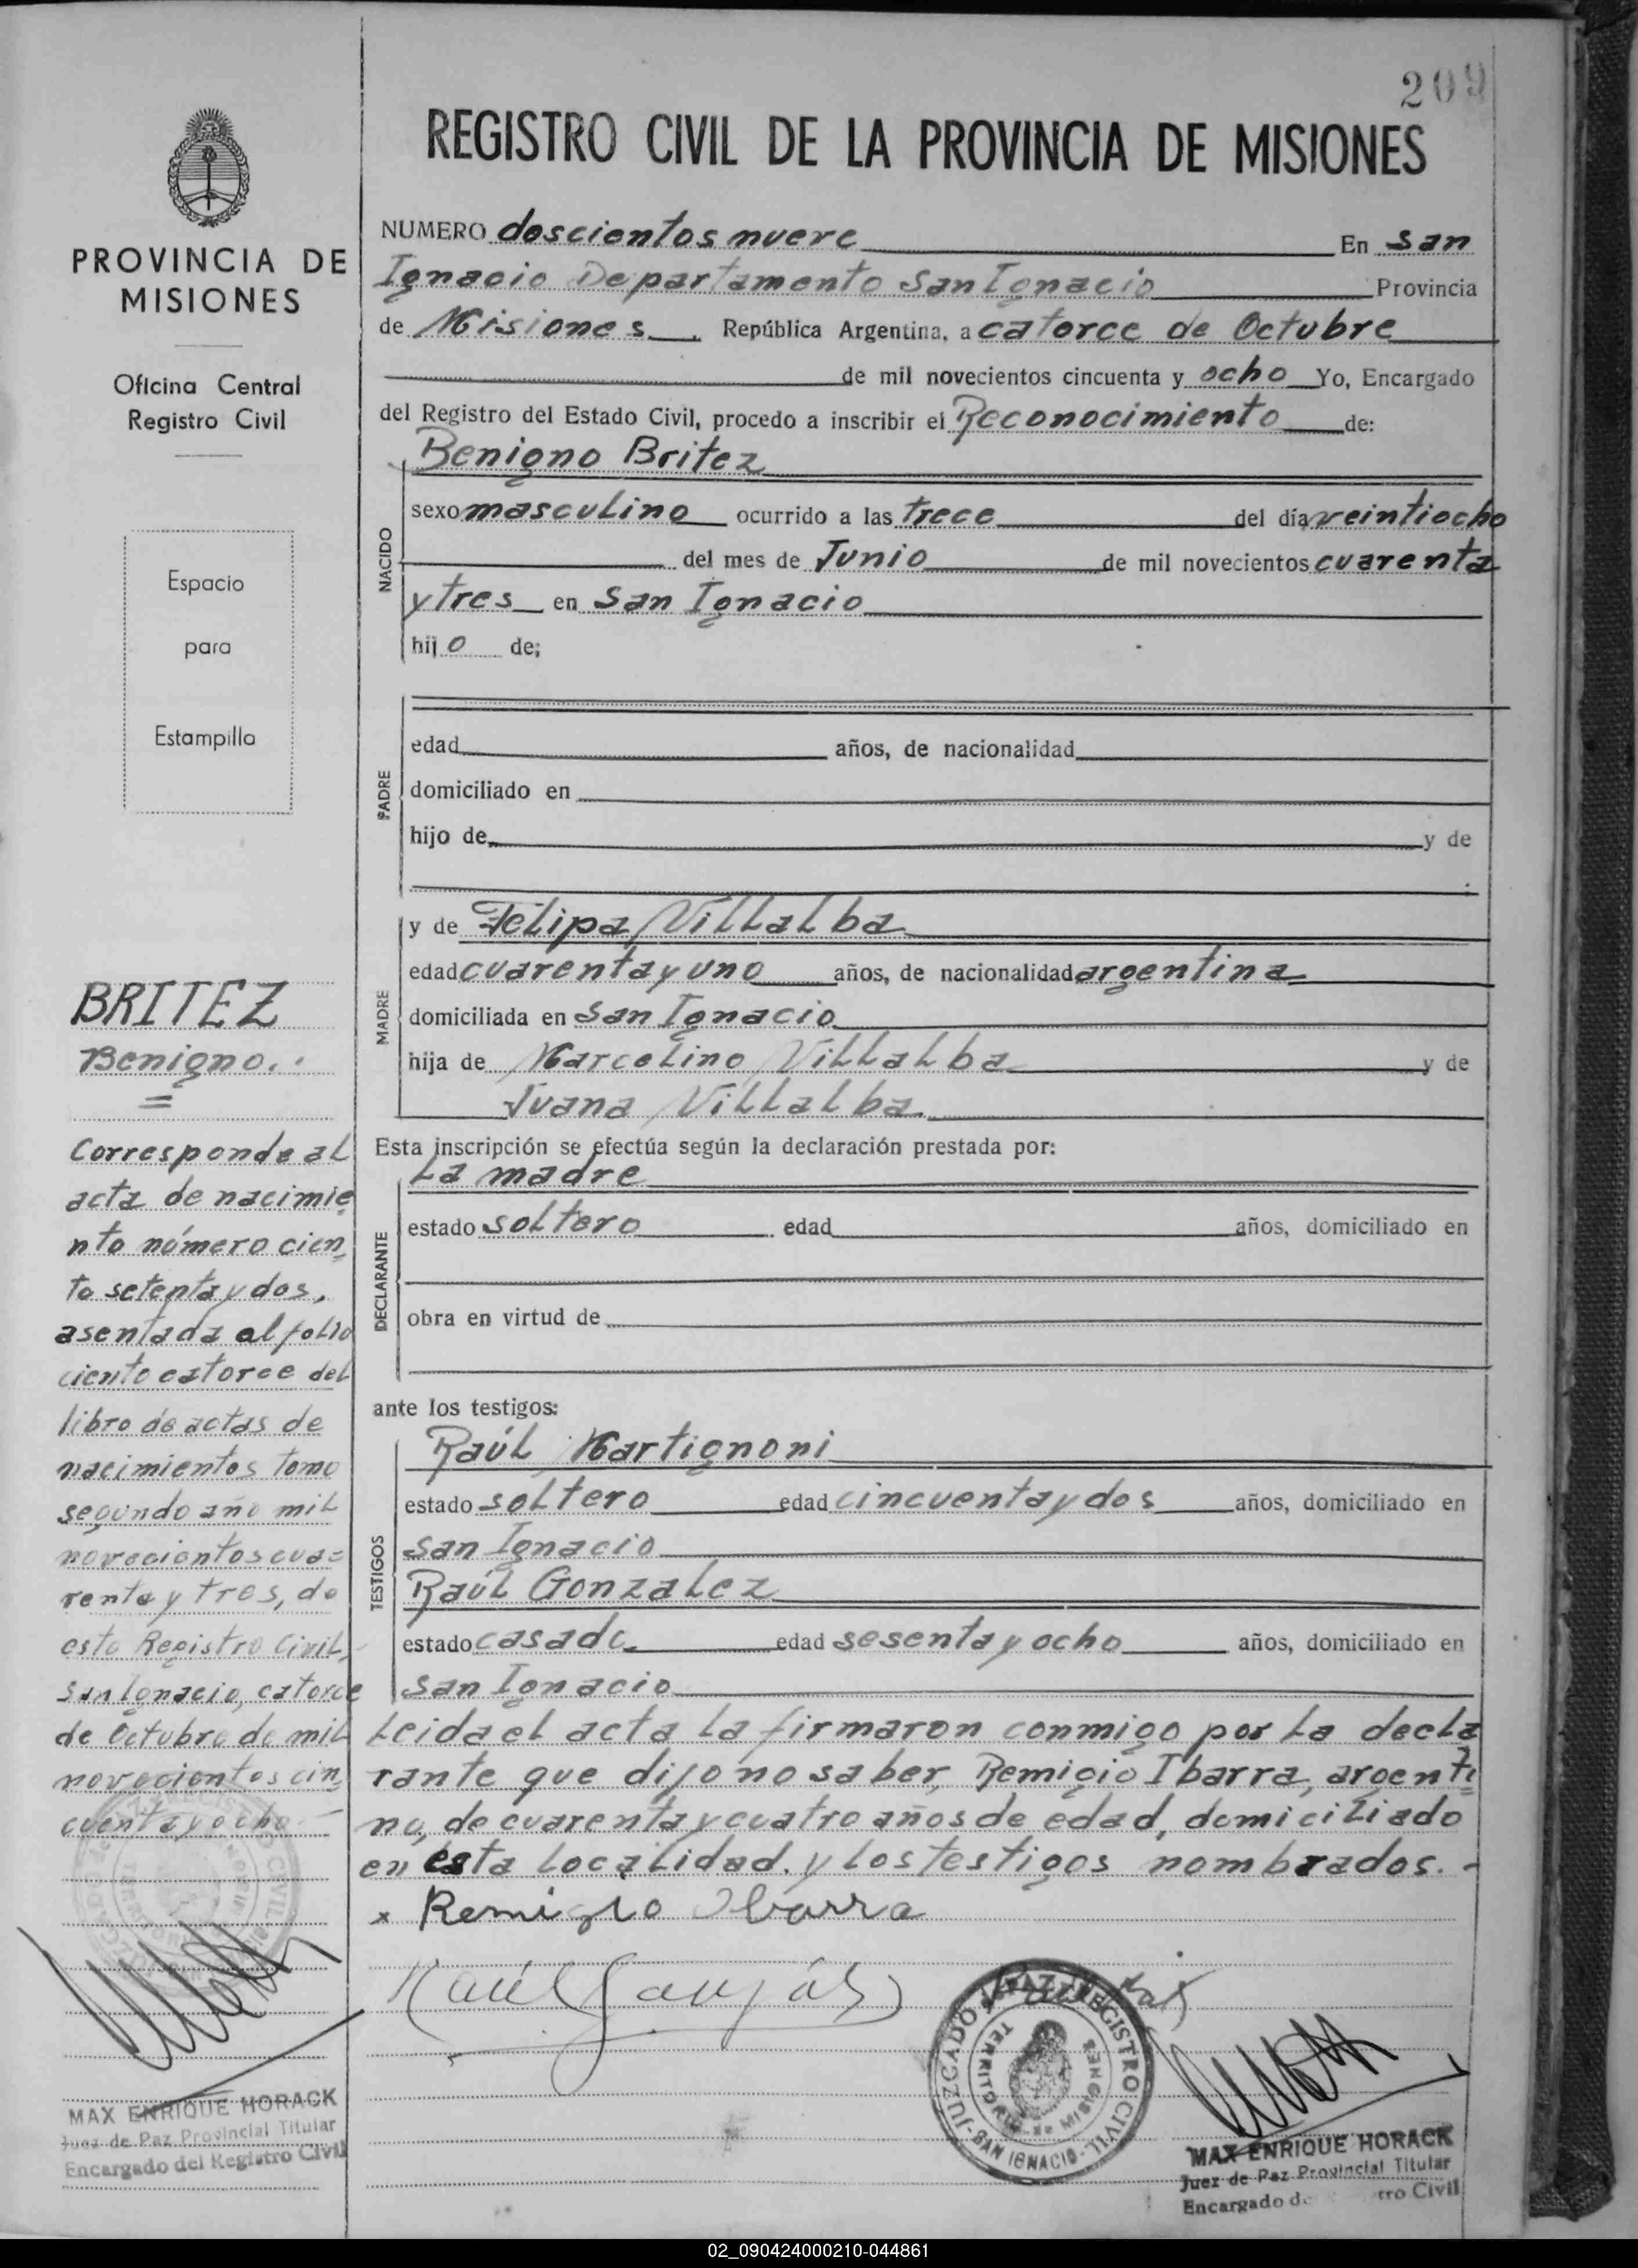 209
REGISTRO CIVIL DE LA PROVINCIA DE MISIONES
PROVINCIA DE
MISIONES
Oficina Central
Registro Civil
Espacio
para
Estampilla
BRITEZ
Benigno.
Corresponde al
acta de nacimie
nto número cien
to setenta y dos,
asentada al folio
ciento catorce del
libro de actas de
nacimientos tomo
segundo año mil
novecientos cua=
renta y tres, de
este Registro Civil,
San Ignacio, catorce
de Octubre de mil
novecientos cin
cuenta y ocho
MAX ENRIQUE HORACK
Juez de Paz Provincial Titular
Encargado del Registro Civil
NUMERO doscientos nueve En San
Ignacio Departamento San Ignacio Provincia
de Misiones. República Argentina, a catorce de Octubre
de mil novecientos cincuenta y ocho Yo, Encargado
del Registro del Estado Civil, procedo a inscribir el Reconocimiento de:
NACIDO
Benigno Britez
sexo masculino ocurrido a las trece del día veintiocho
del mes de Junio de mil novecientos cuarenta
y tres en San Ignacio
hijo de;
PADRE
edad años, de nacionalidad
domiciliado en
hijo de y de
MADRE
y de Felipa Villalba
edad cuarenta y uno años, de nacionalidad argentina
domiciliada en San Ignacio
hija de Marcelino Villalba y de
Juana Villalba
Esta inscripción se efectúa según la declaración prestada por:
DECLARANTE
La madre
estado soltero edad años, domiciliado en
obra en virtud de
ante los testigos:
TESTIGOS
Raúl Martignoni
estado soltero edad cincuenta y dos años, domiciliado en
San Ignacio
Raúl Gonzalez
estado casado edad sesenta y ocho años, domiciliado en
San Ignacio
Leida el acta la firmaron conmigo por la decla
rante que dijo no saber, Remigio Ibarra, argenti
no, de cuarenta y cuatro años de edad, domiciliado
en ésta localidad. y los testigos nombrados. -
x Remigio Ibarra
JUZGADO DE PAZ Y REGISTRO CIVIL
TERRITORIO DE MISIONES
-SAN IGNACIO-
MAX ENRIQUE HORACK
Juez de Paz Provincial Titular
Encargado de tro Civil
02_090424000210-044861